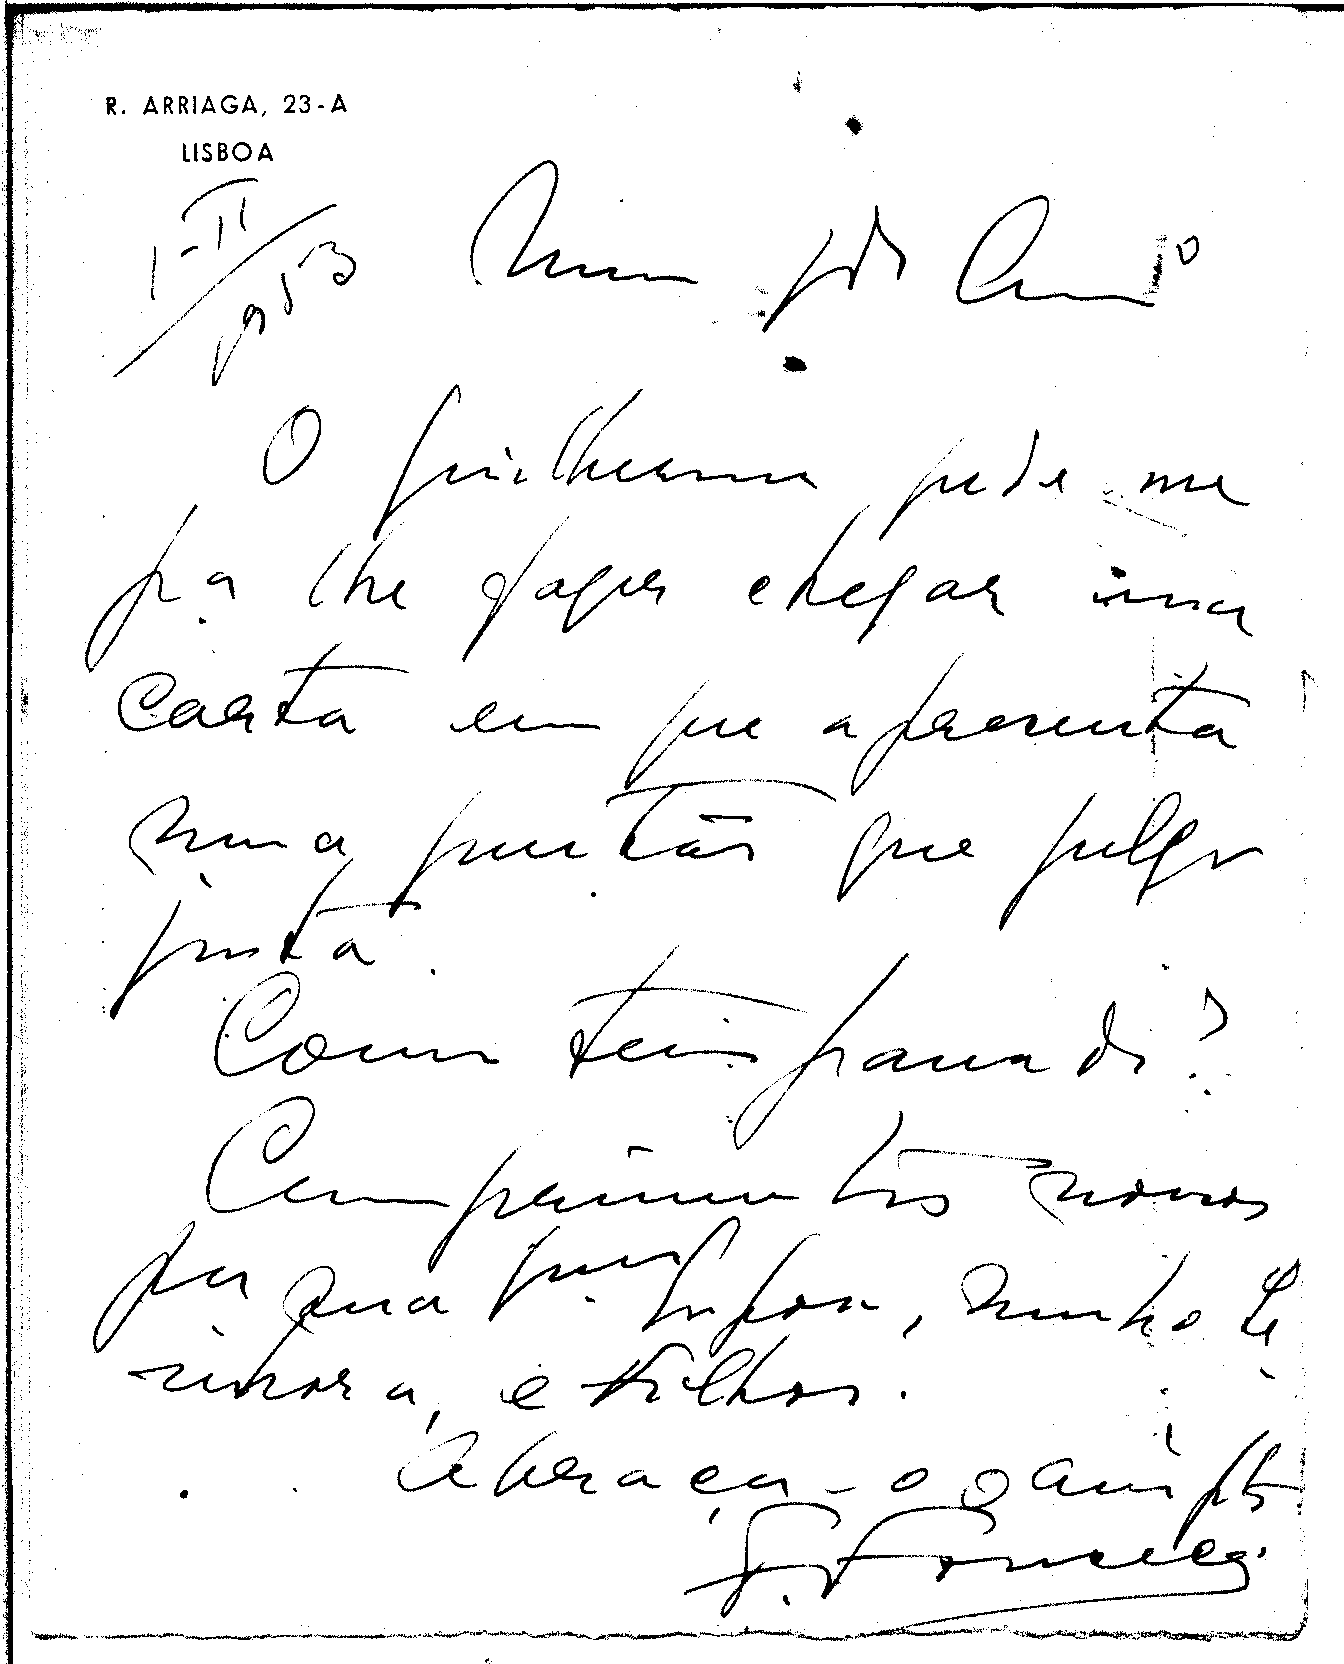 R. ARRIAGA, 23-A
LISBOA
1-II
953
Meu
O Guilherme pede me
pª lhe fazer chegar uma
carta em que apresenta
uma questão que julgo
justa.
Como tem passado?
Cumprimentos nossos
para sua
e filhos.
Abraça-o o
F. Fonseca